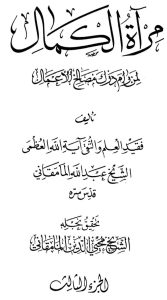 مرآة الكمال
لمن رام درك مصالح الأعمال
تأليف
فقيد العلم والتقى آية الله العظمى
الشيخ عبد الله المامقاني
قدس سره
تحقيق نجله
الشيخ محيي الدين المامقاني
الجزء الثالث